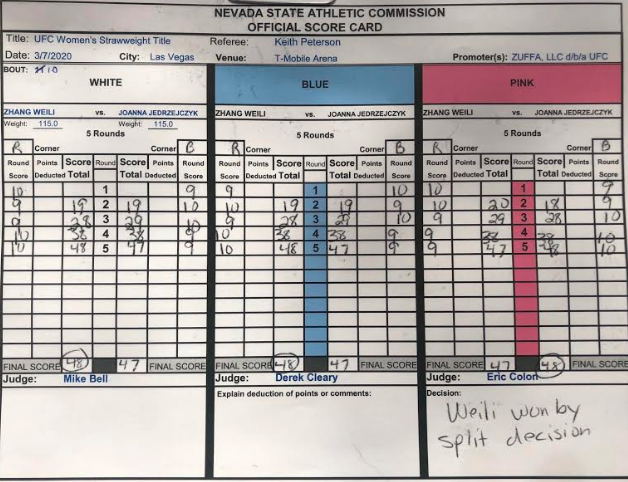 NEVADA STATE ATHLETIC COMMISSION
OFFICIAL SCORE CARD
Title: UFC Women's Strawweight Title Referee: Keith Peterson
Date: 3/7/2020 City: Las Vegas Venue: T-Mobile Arena Promoter(s): ZUFFA, LLC d/b/a UFC
BOUT: 10
WHITE BLUE PINK
ZHANG WEILI vs. JOANNA JEDRZEJCZYK ZHANG WEILI vs. JOANNA JEDRZEJCZYK ZHANG WEILI vs. JOANNA JEDRZEJCZYK
Weight: 115.0 Weight: 115.0
5 Rounds 5 Rounds 5 Rounds
R Corner Corner B R Corner Corner B R Corner Corner B
Round Points Score Round Score Points Round Round Points Score Round Score Points Round Round Points Score Round Score Points Round
Score Deducted Total Total Deducted Score Score Deducted Total Total Deducted Score Score Deducted Total Total Deducted Score
10 1 9 9 1 10 10 1 9
9 19 2 19 10 10 19 2 19 9 10 20 2 18 9
9 28 3 29 10 9 28 3 28 10 9 29 3 28 10
10 38 4 38 9 10 38 4 38 9 9 38 4 38 10
10 48 5 47 9 10 48 5 47 9 9 47 5 48 10
FINAL SCORE 48 47 FINAL SCORE FINAL SCORE 48 47 FINAL SCORE FINAL SCORE 47 48 FINAL SCORE
Judge: Mike Bell Judge: Derek Cleary Judge: Eric Colon
Explain deduction of points or comments: Decision:
Weili won by
split decision